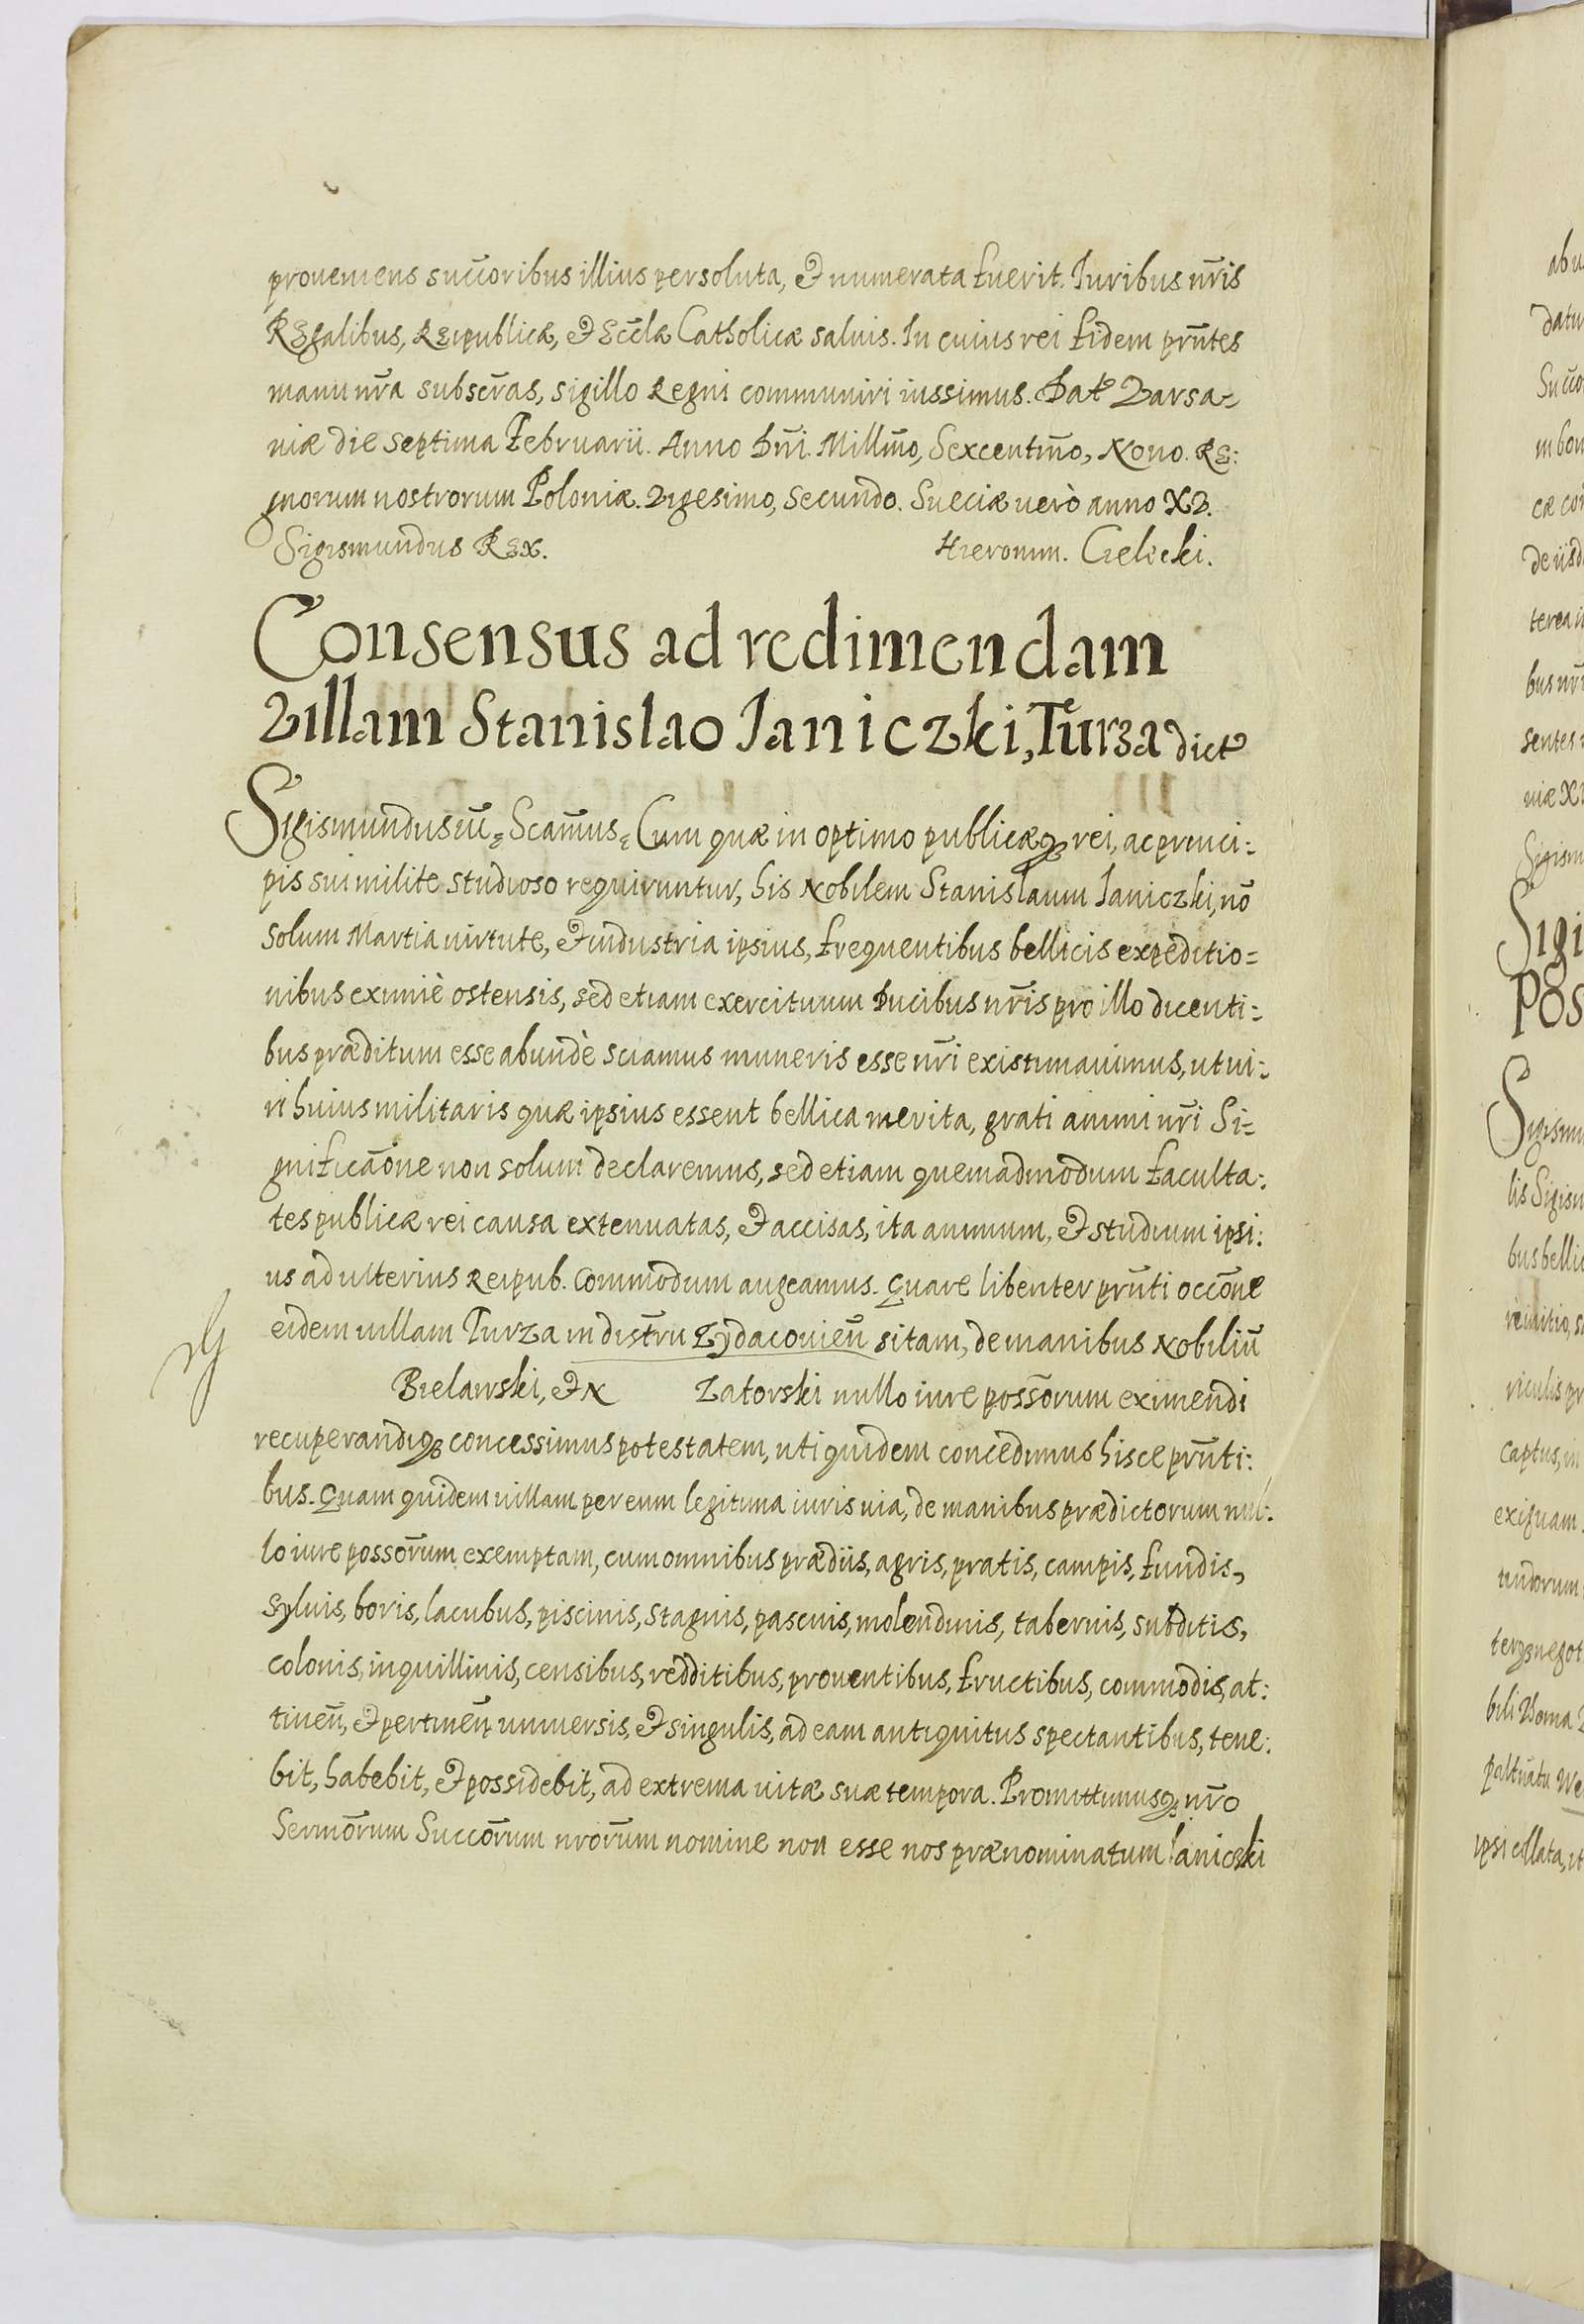 proueniens succ̄oribus illius persoluta, et numerata fuerit. Iuribus nr̄is
Regalibus, Reipublicæ, et Eccl̄æ Catholicæ saluis. In cuius rei fidem prn̄tes
manu nr̄a subscr̄as, sigillo Regni communiri iussimus. Dat Varsa-
uiæ die Septima Februarii. Anno Dn̄i. Millm̄o, Sexcentm̄o, Nono. Re:
gnorum nostrorum Poloniæ. Vigesimo, Secundo. Sueciæ uerò anno XV.
Sigismundus Rex. Hieronim. Cielecki.
Consensus ad redimendam
Villam Stanislao Ianiczki, Turza dict
Sigismundus iii Scam̄us Cum quæ in optimo publicæq; rei, ac princi:
pis sui milite studioso requiruntur, his Nobilem Stanislaum Ianiczki, nō
solum Martia uirtute, et industria ipsius, frequentibus bellicis expeditio=
nibus eximiè ostensis, sed etiam exercituum Ducibus nr̄is pro illo dicenti:
bus præditum esse abundè sciamus muneris esse nr̄i existimauimus, ut ui:
ri huius militaris quæ ipsius essent bellica merita, grati animi nr̄i Si=
gnificāone non solum declaremus, sed etiam quemadmodum faculta:
tes publicæ rei causa extenuatas, et accisas, ita animum, et studium ipsi:
us ad ulterius Reipub. Commodum augeamus. Quare libenter prn̄ti occōne
eidem uillam Turza in distr̄u Zydaconien̄ sitam, de manibus Nobiliū
Bielawski, et N Zatorski nullo iure poss̄orum eximendi
recuperandiq; concessimus potestatem, uti quidem concedimus hisce prn̄ti:
bus. Quam quidem uillam per eum legitima iuris uia, de manibus prædictorum nul:
lo iure possōrum exemptam, cum omnibus prædiis, agris, pratis, campis, fundis,
syluis, boris, lacubus, piscinis, stagnis, pascuis, molendinis, tabernis, subditis,
colonis, inquillinis, censibus, redditibus, prouentibus, fructibus, commodis, at:
tinen̄, et pertinen̄ uniuersis, et singulis, ad eam antiquitus spectantibus, tene:
bit, habebit, et possidebit, ad extrema uitæ suæ tempora. Promittimusq; nr̄o
Sermōrum Succōrum nrōrum nomine non esse nos prænominatum Ianiczki